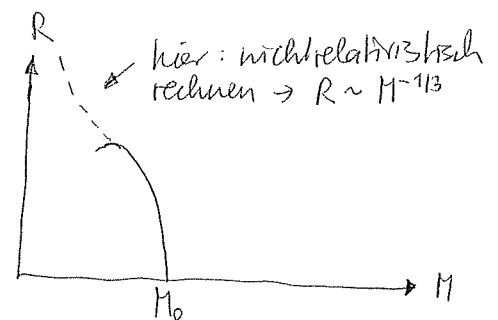 R
hier: nichtrelativistisch
rechnen → R ~ M^-1/3
M
M₀